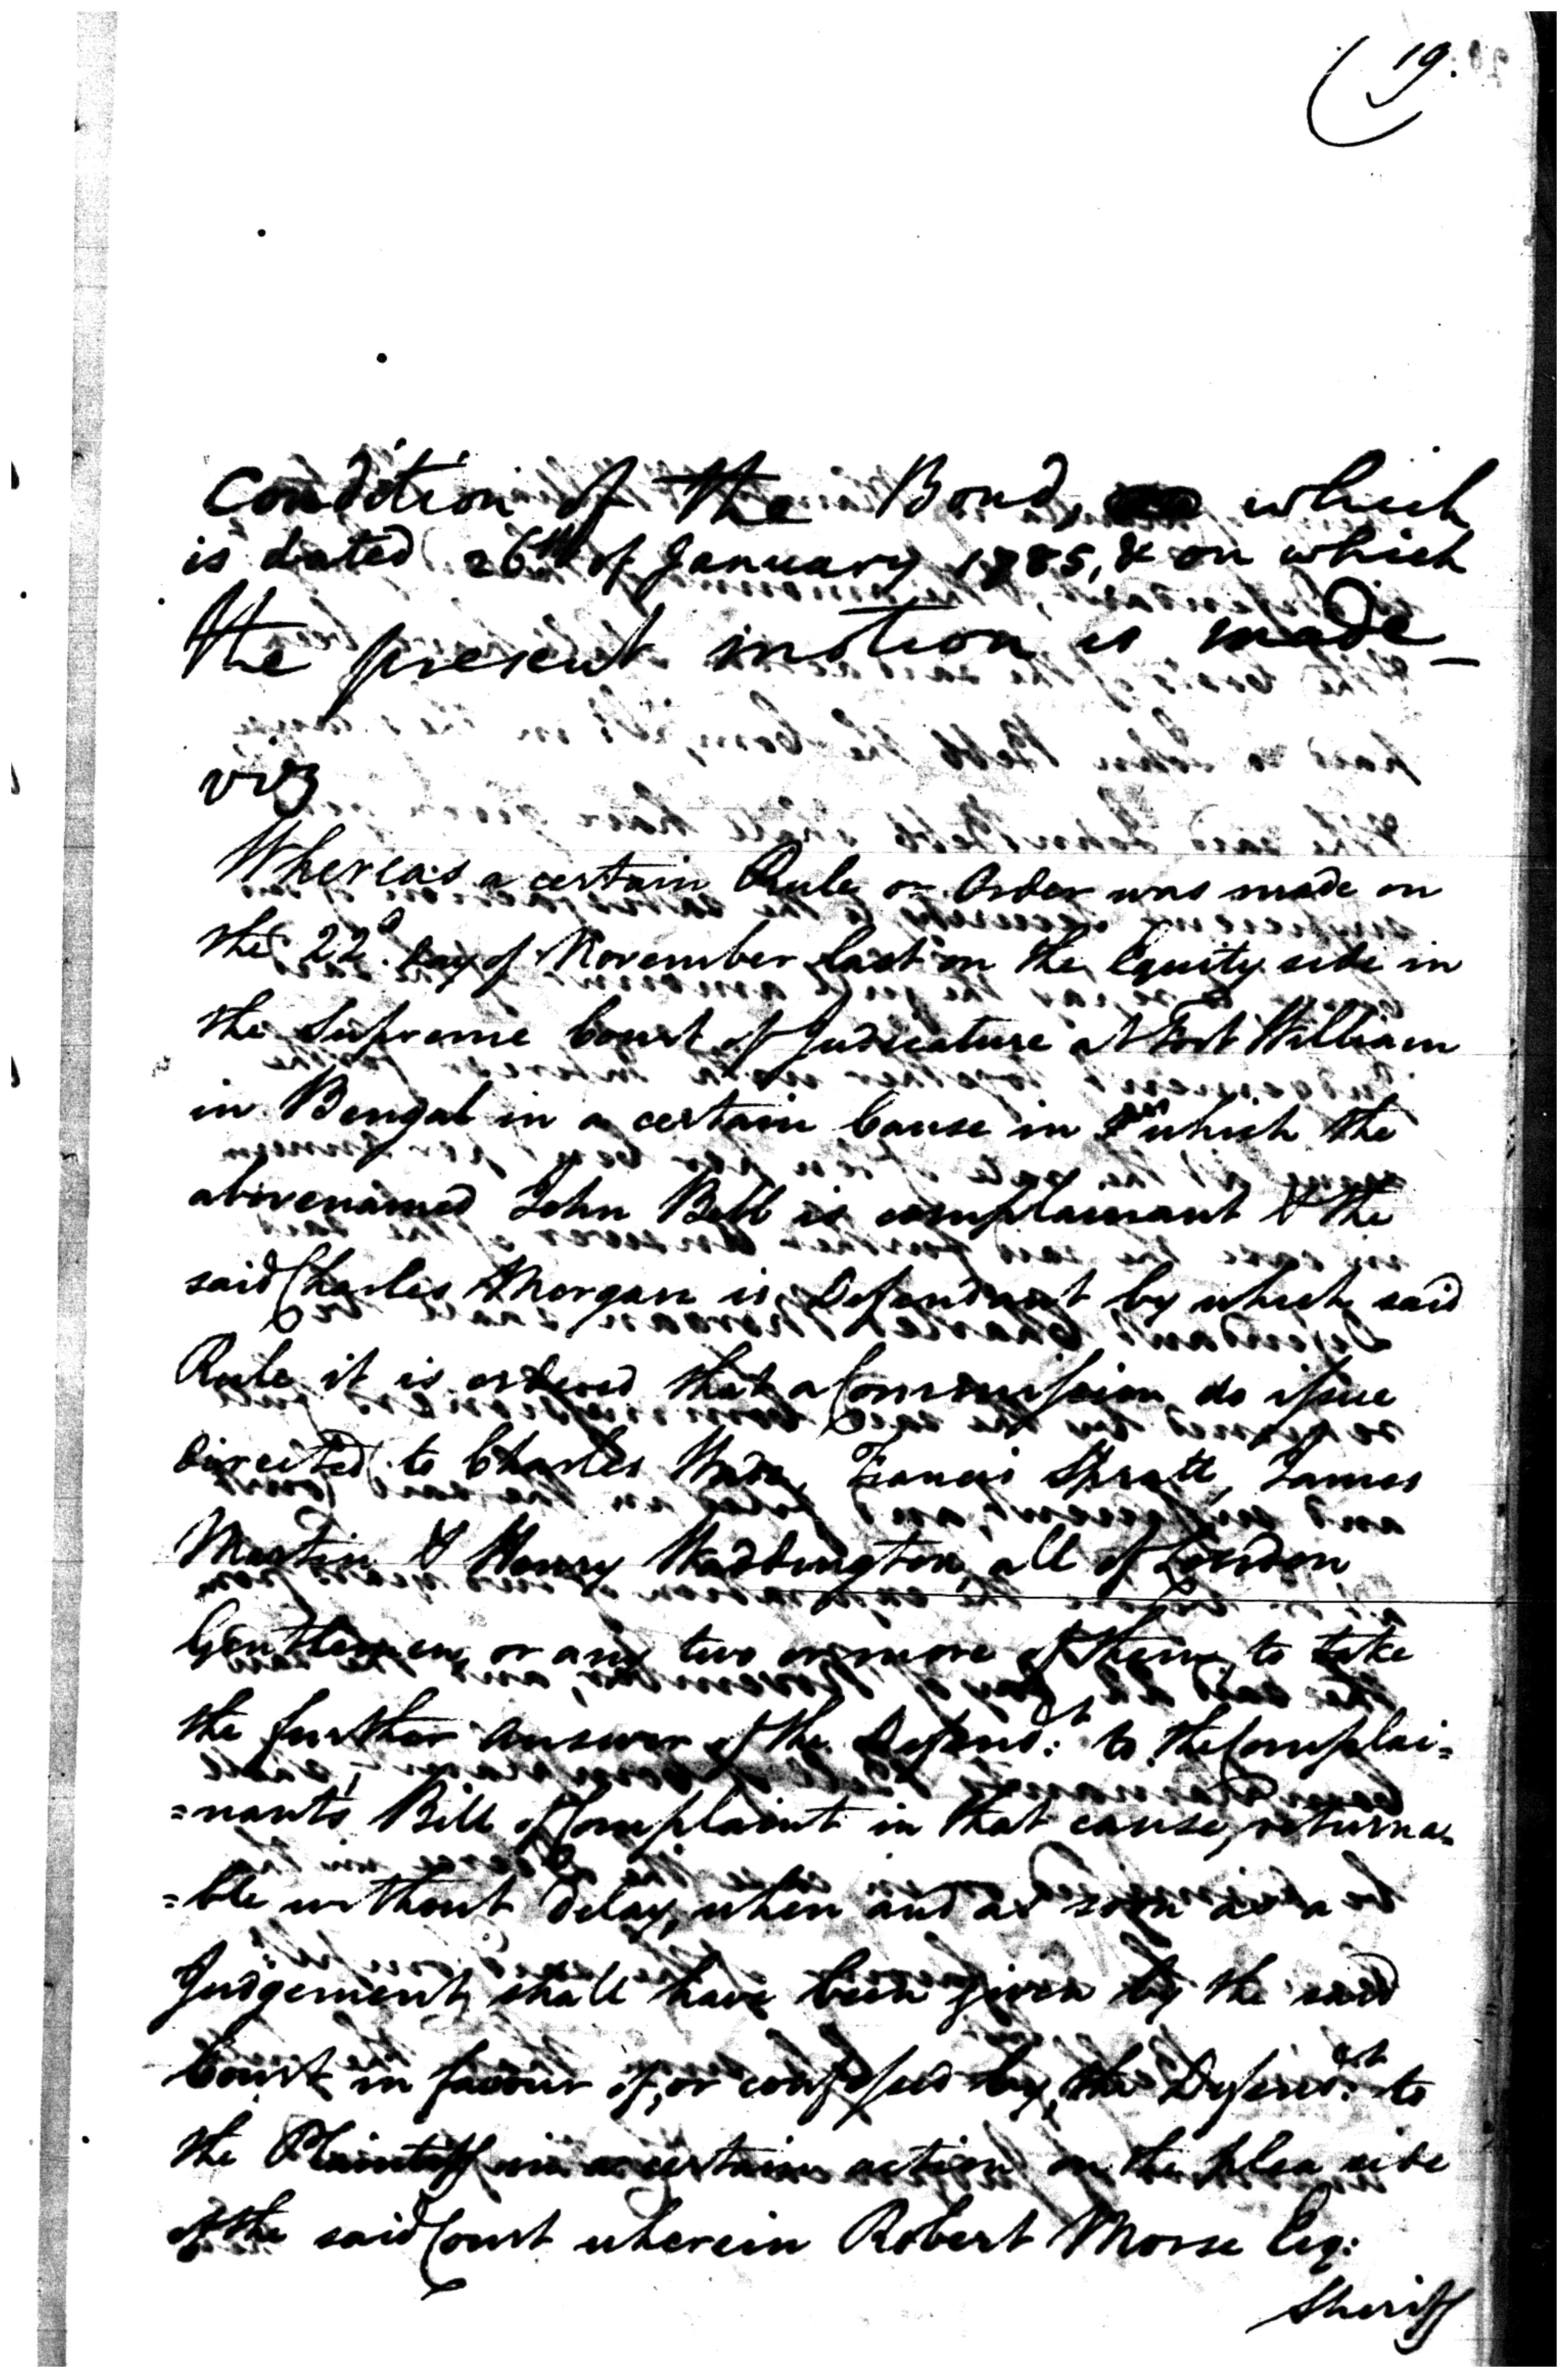 19.
Condition of the Bond, which
is dated 26th of January 1785, & on which
the present motion is made—
viz
Whereas a certain Rule or Order was made on
the 22d. Day of November last on the Equity side in
the Supreme Court of Judicature at Fort William
in Bengal in a certain Cause in which the
abovenamed John Bebb is complainant & the
said Charles Morgan is Defendant by which said
Rule it is ordered that a Commission do issue
Directed to Charles Francis Spratt, James
Martin & Henry Waddington, all of London
Gentlemen, or any two or more of them, to take
the further Answer of the Defend:t to the Complai=
=nant's Bill of Complaint in that cause, returna=
=ble without delay, when and as soon as a
Judgement shall have been given by the said
Court in favour of, or confessed by, the Defend:t to
the Plaintiff in a certain action on the plea side
of the said Court wherein Robert Morse Esq:
Sheriff